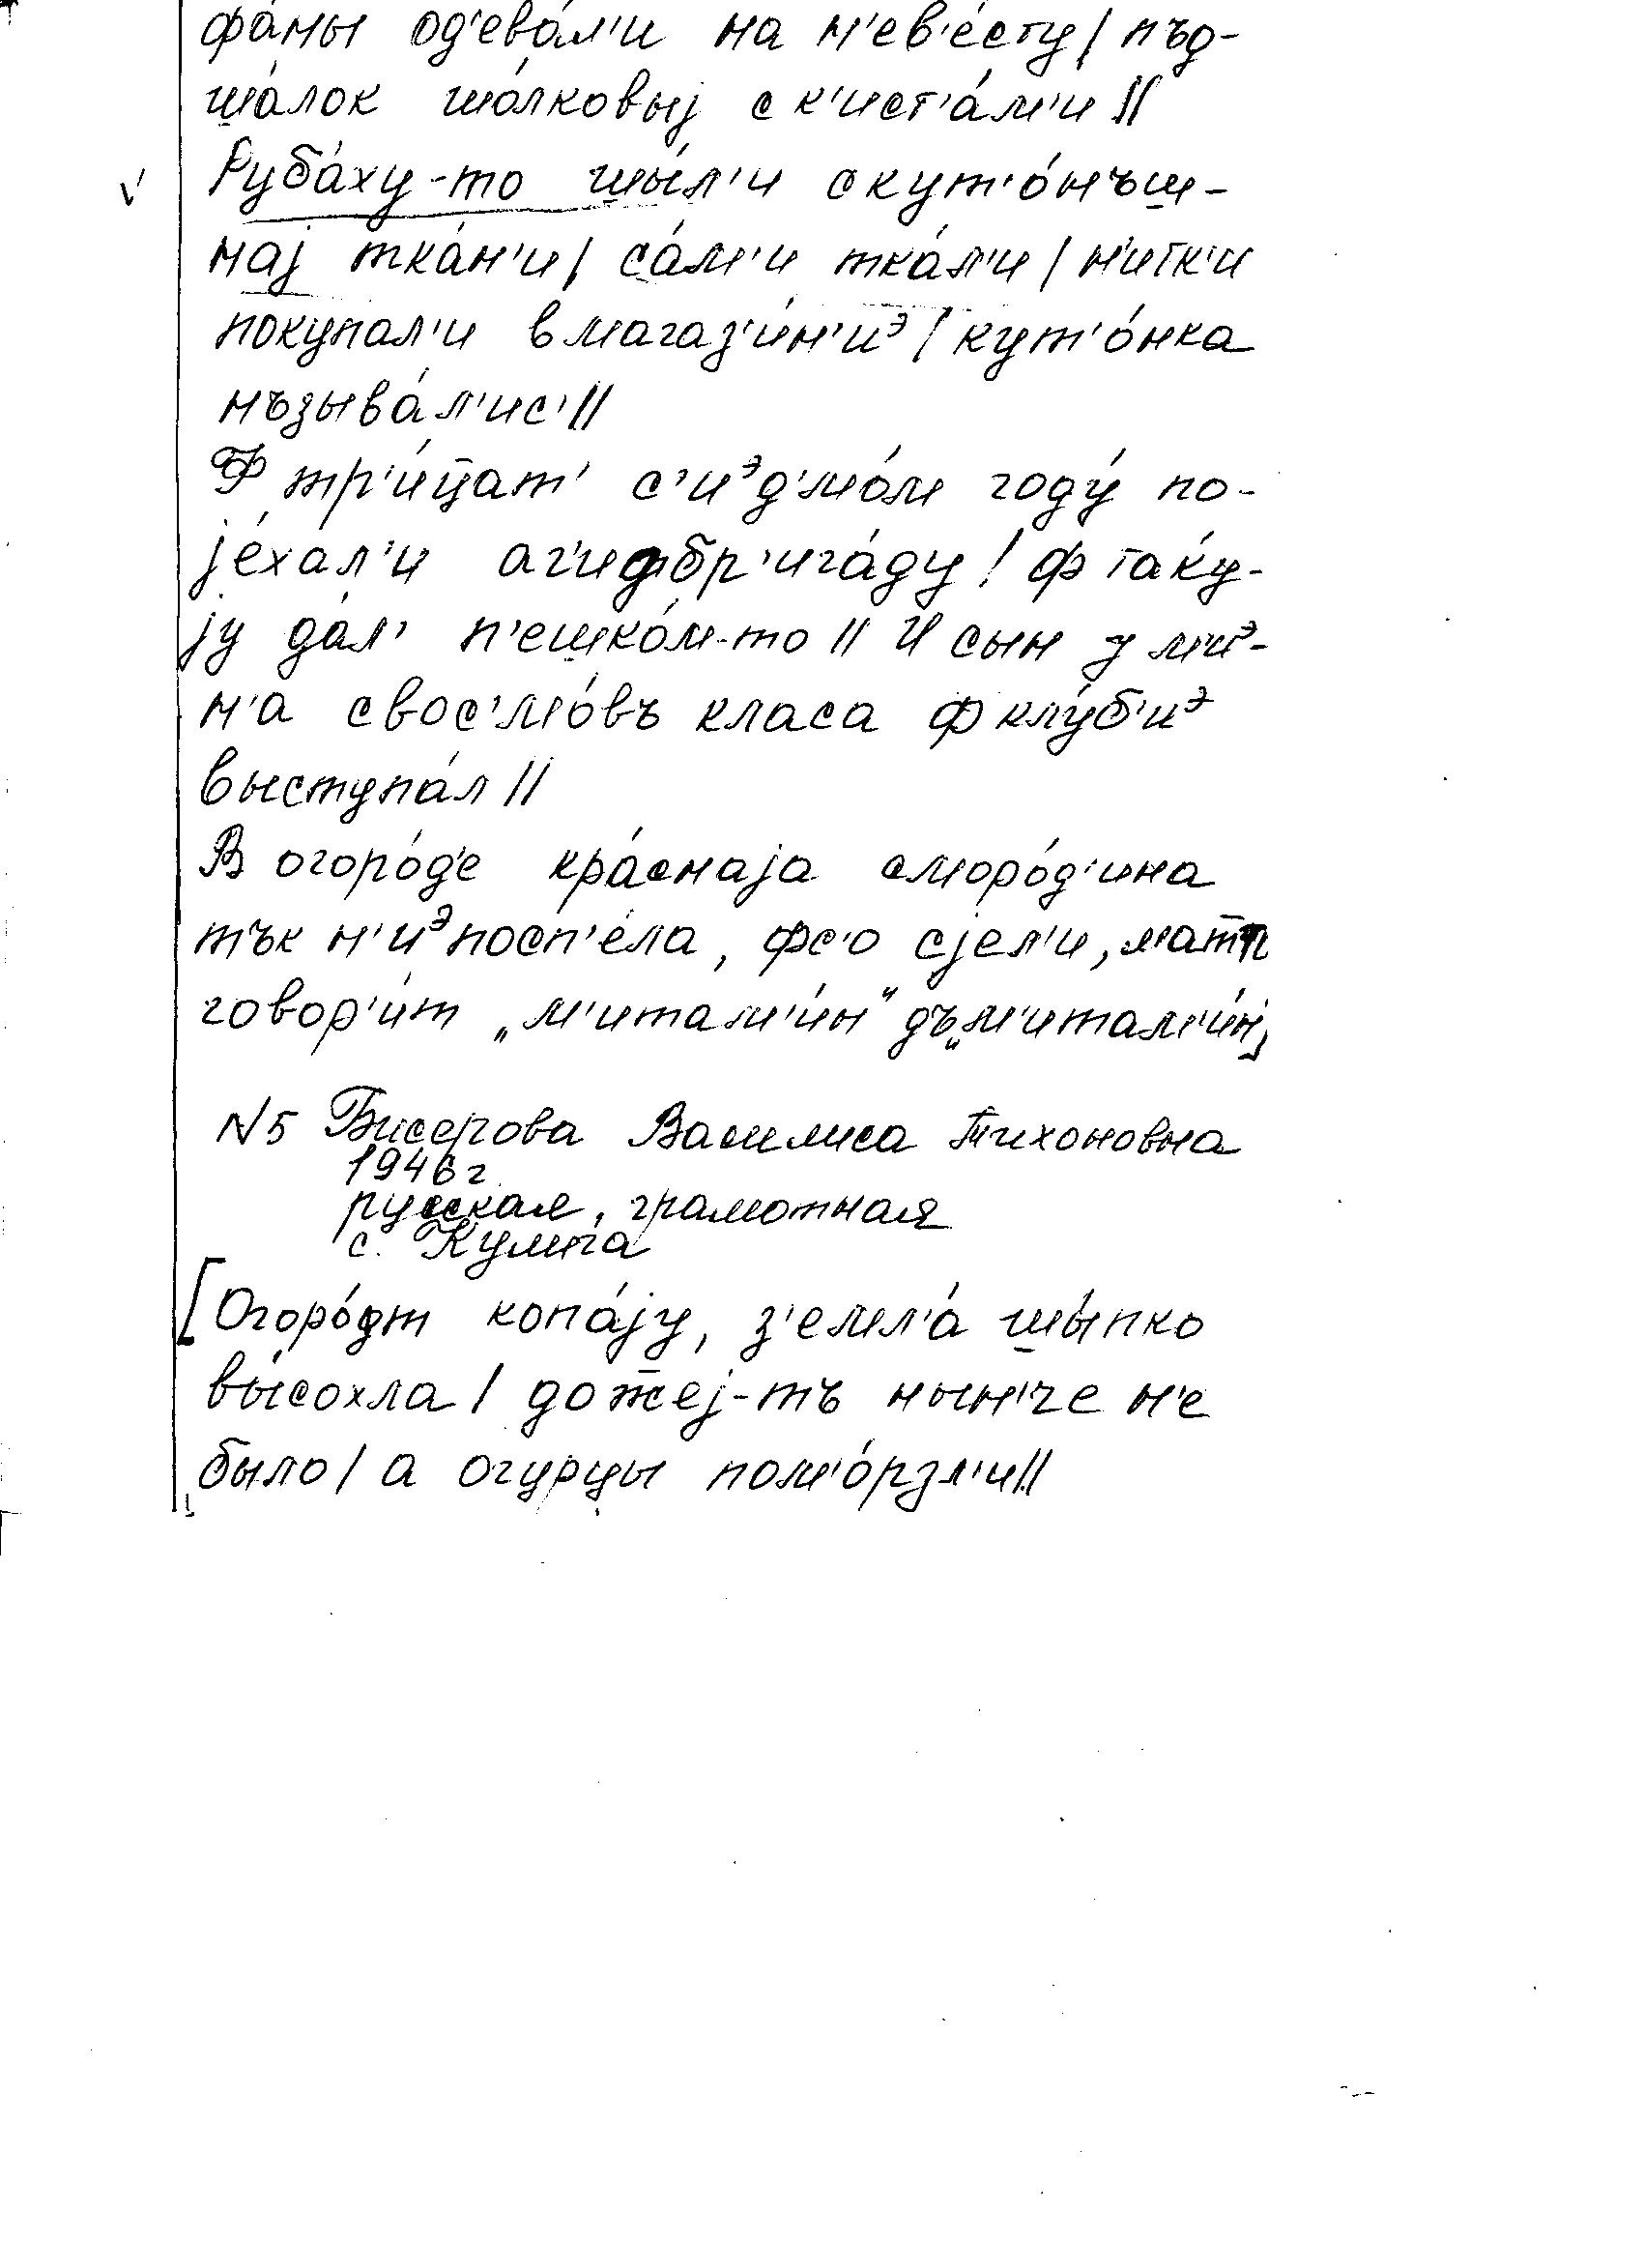 фа́ны од'ева́л'и на н'ев'е́сту / пъд-
ша́лок шо́лковыј с к'ист'а́м'и //
Руба́ху-то шы́л'и с кут'о́нъш-
нај тка́н'и / са́м'и тка́л'и / н'и́тк'и
покупал'и в магаз'и́н'иᵊ / кут'о́нка
нъзыва́л'ис' //
Ф тр'и́цат' с'иᵊд'мо́м году́ по-
је́хал'и аг'идбр'ига́ду / ф таку́-
ју дал' п'ешко́м-то // И сын у м'иᵊ-
н'а с вос'мо́въ класа ф клу́б'иᵊ
выступа́л //
В огоро́д'е кра́снаја сморо́д'ина
тък н'иᵊпосп'е́ла, фс'о сјел'и, мат'
говор'и́т „м'итам'и́н" дъ „м'итам'и́н"
№5 Бисерова Василиса Тихоновна
1946г.
русская, грамотная
с. Кулига
[Огоро́дт копа́ју, з'емл'а́ шы́пко
вы́сохла / дожеј-тъ нын'че н'е
было / а огурцы пом'о́рзл'и //